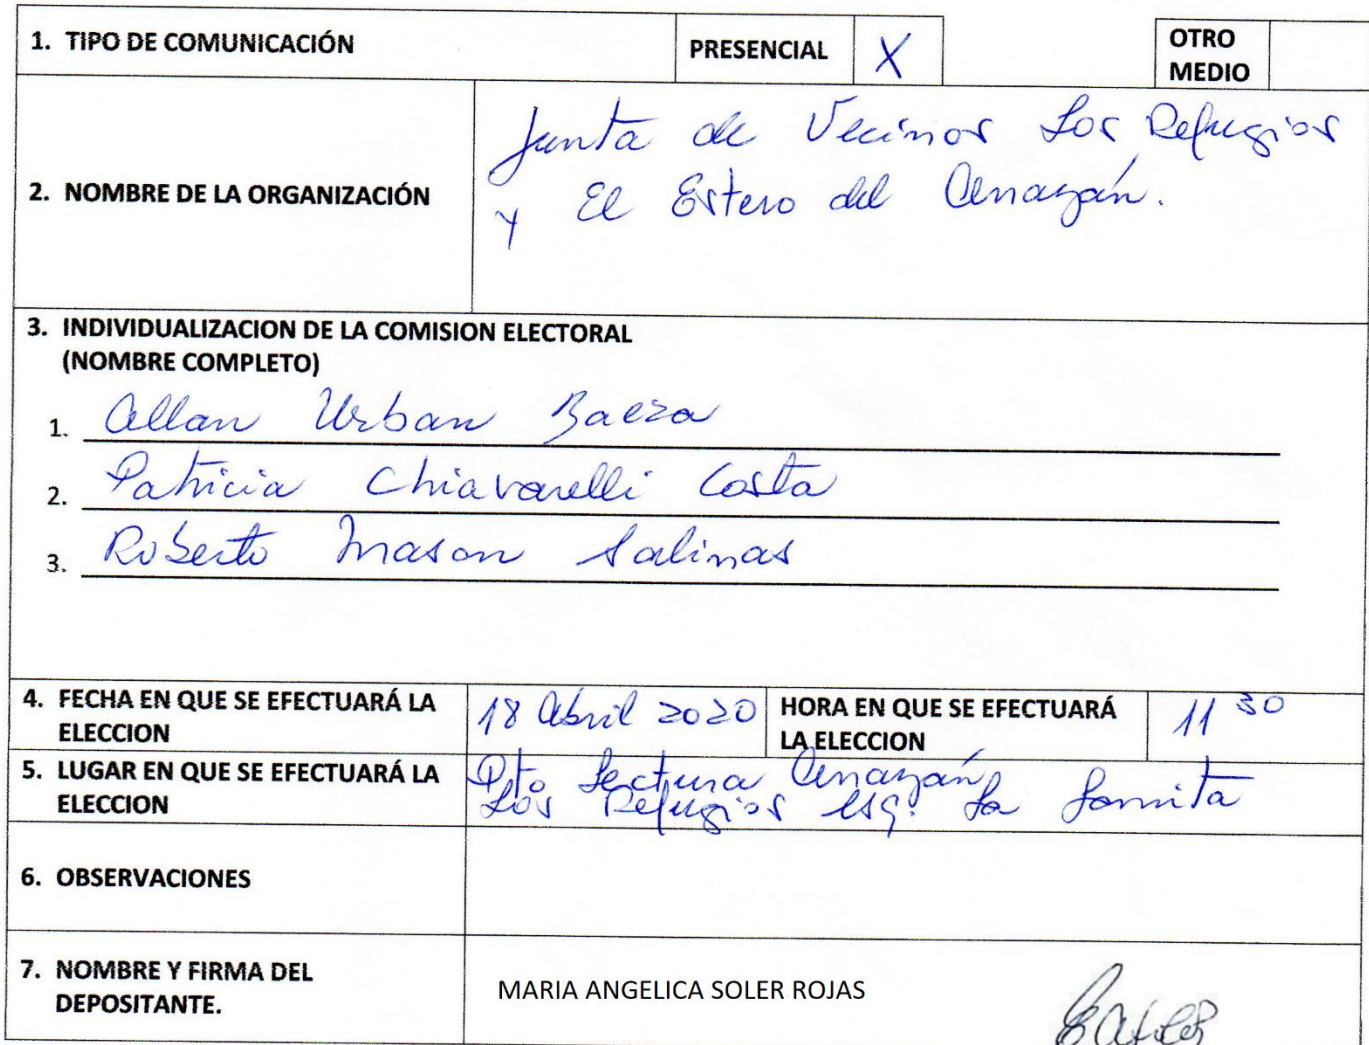 1. TIPO DE COMUNICACIÓN PRESENCIAL X OTRO MEDIO
2. NOMBRE DE LA ORGANIZACIÓN
Junta de Vecinos Los Refugios
y El Estero del Arrayán.
3. INDIVIDUALIZACION DE LA COMISION ELECTORAL
(NOMBRE COMPLETO)
1. Allan Urban Baeza
2. Patricia Chiavarelli Costa
3. Roberto Mason Salinas
4. FECHA EN QUE SE EFECTUARÁ LA ELECCION 18 Abril 2020 HORA EN QUE SE EFECTUARÁ LA ELECCION 11 30
5. LUGAR EN QUE SE EFECTUARÁ LA ELECCION
Pto Lectura Arrayán
Los Refugios esq. La Lomita
6. OBSERVACIONES
7. NOMBRE Y FIRMA DEL DEPOSITANTE. MARIA ANGELICA SOLER ROJAS